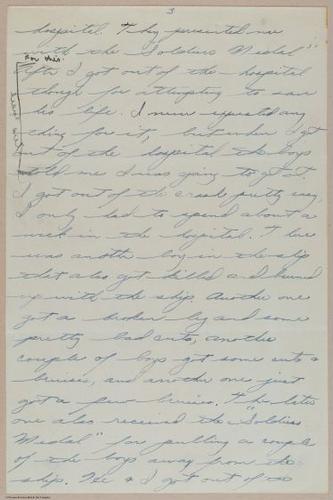 3
hospital. They presented me
with the "Soldiers Medal"
for this.
After I got out of the hospital
though for attempting to save
his life. I never expected any
thing for it, but when I got
out of the hospital the boys
told me I was going to get it.
I got out of the crash pretty easy,
I only had to spend about a
week in the hospital. There
was another boy in the ship
that also got killed and burned
up with the ship. Another one
got a broken leg and some
pretty bad cuts, another
couple of boys got some cuts &
bruises, and another one just
got a few bruises. The later
one also received the "Soldiers
Medal" for pulling a couple
of the boys away from the
ship. He & I got out of the